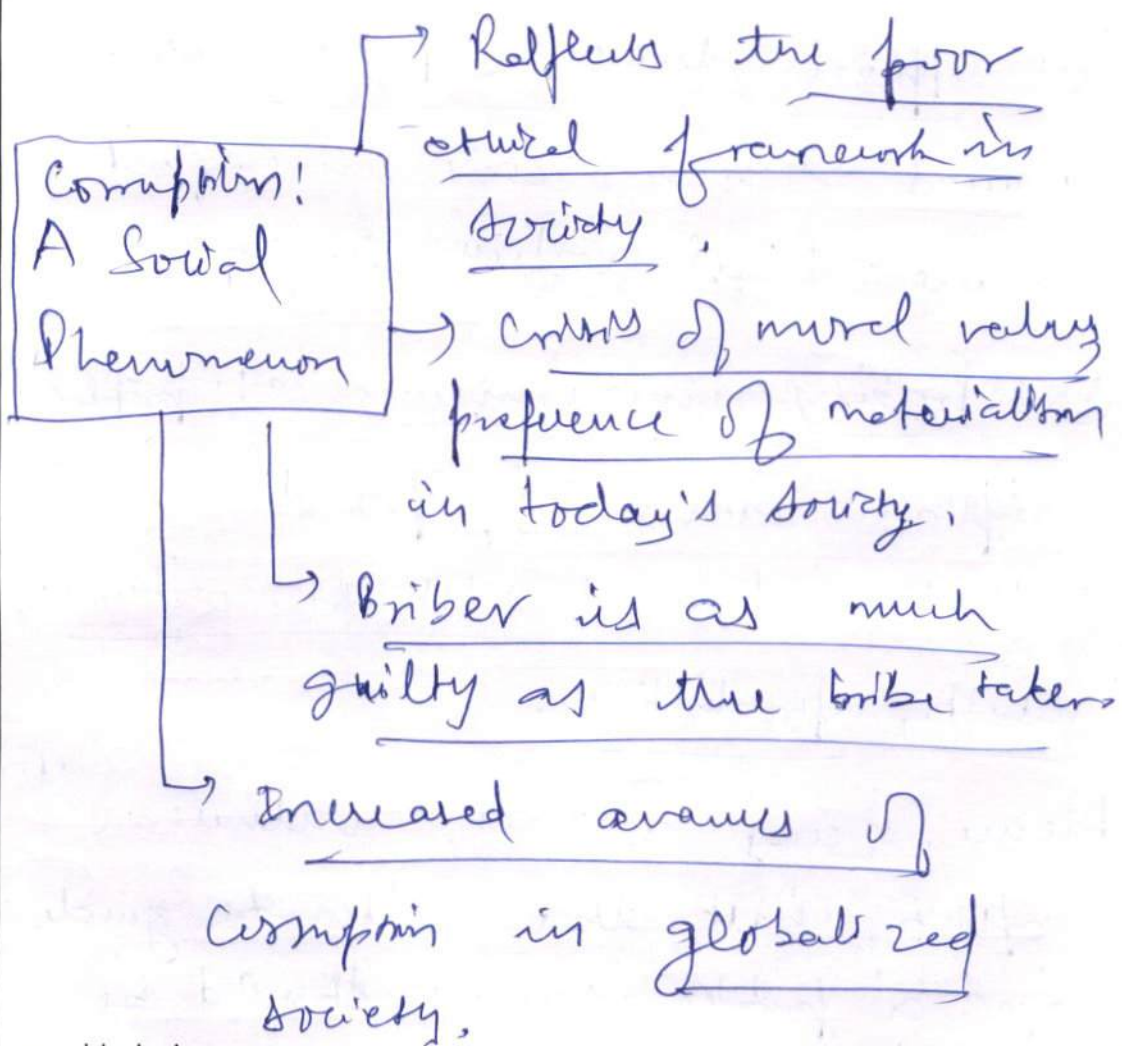 Corruption!
A Social
Phenomenon
Reflects the poor
ethical framework in
society.
Crisis of moral values
preference of materialism
in today's society.
Briber is as much
guilty as the bribe taker.
Increased avenues of
corruption in globalized
society.